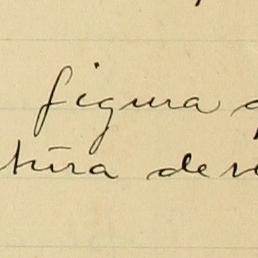 figura
tūra de